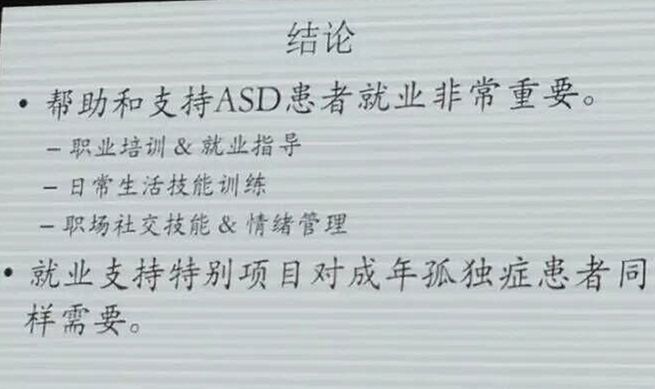 结论
• 帮助和支持ASD患者就业非常重要。
– 职业培训 & 就业指导
– 日常生活技能训练
– 职场社交技能 & 情绪管理
• 就业支持特别项目对成年孤独症患者同
样需要。